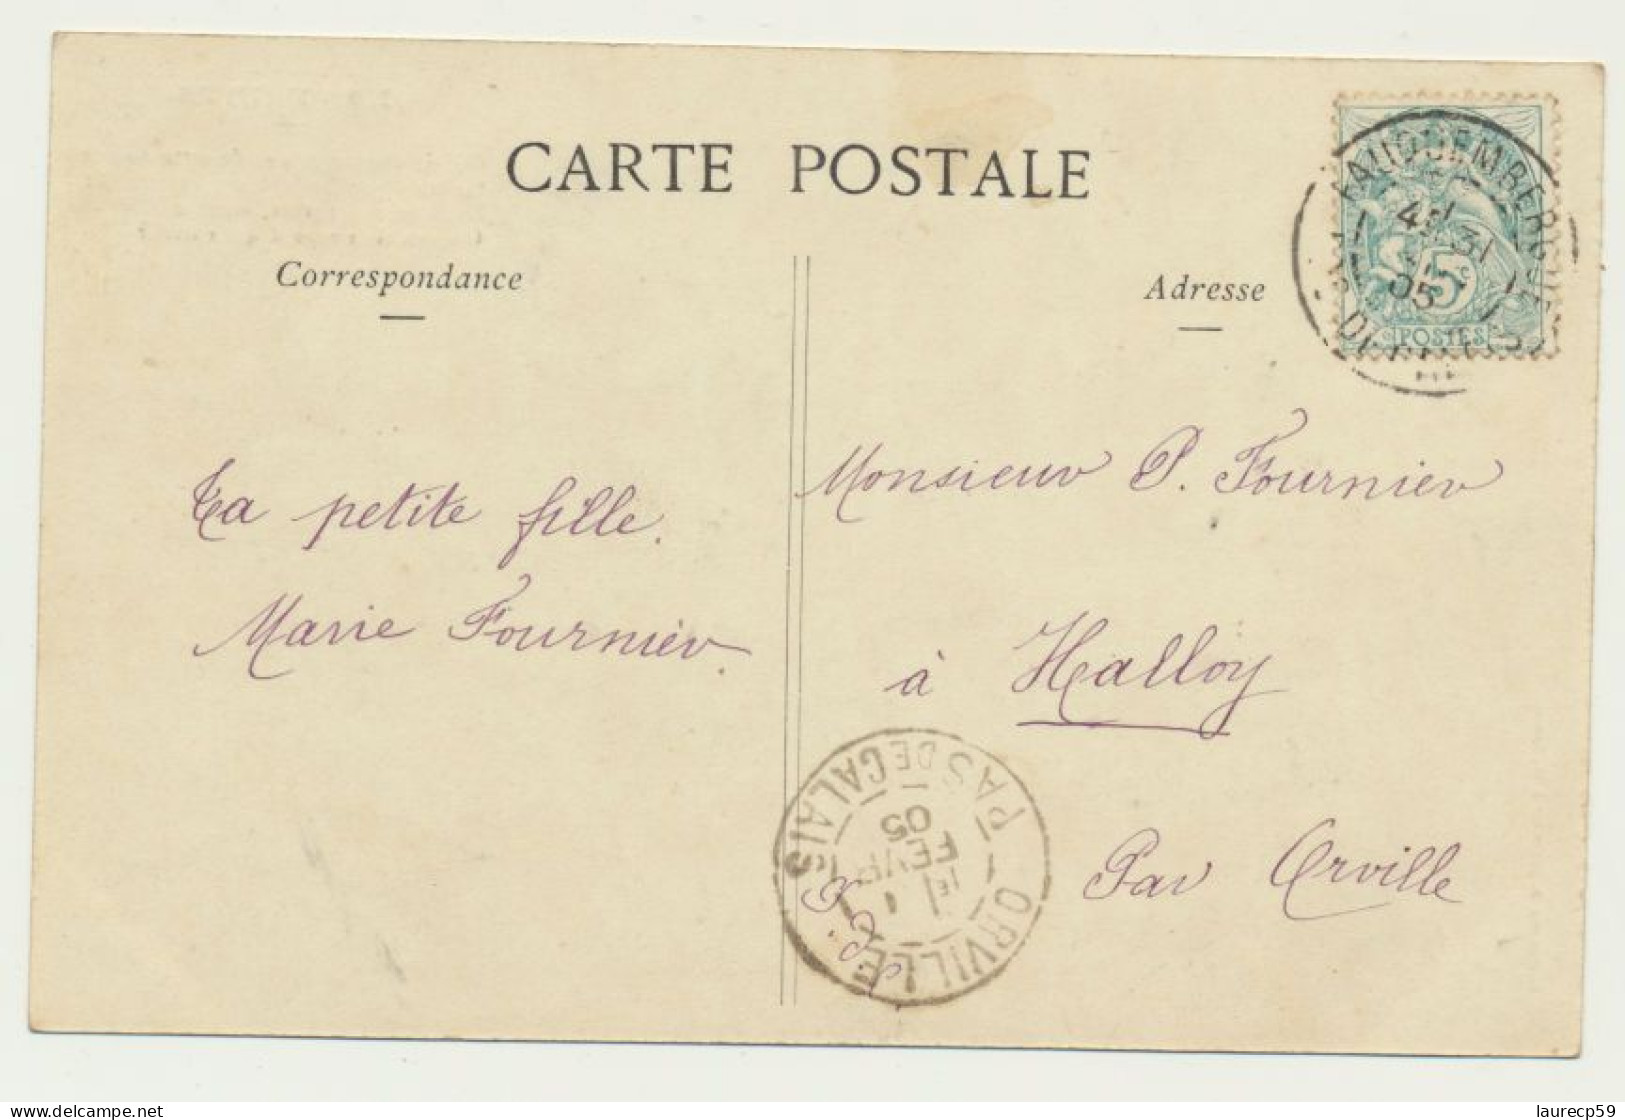 CARTE POSTALE
Correspondance
Adresse
FAUQUEMBERGUES
31
05
5c
POSTES
Ta petite fille.
Marie Fournier.
Monsieur P. Fournier
à Halloy
Par Orville
ORVILLE
PAS DE CALAIS
1E
FEVR
05
delcampe.net
laurecp59